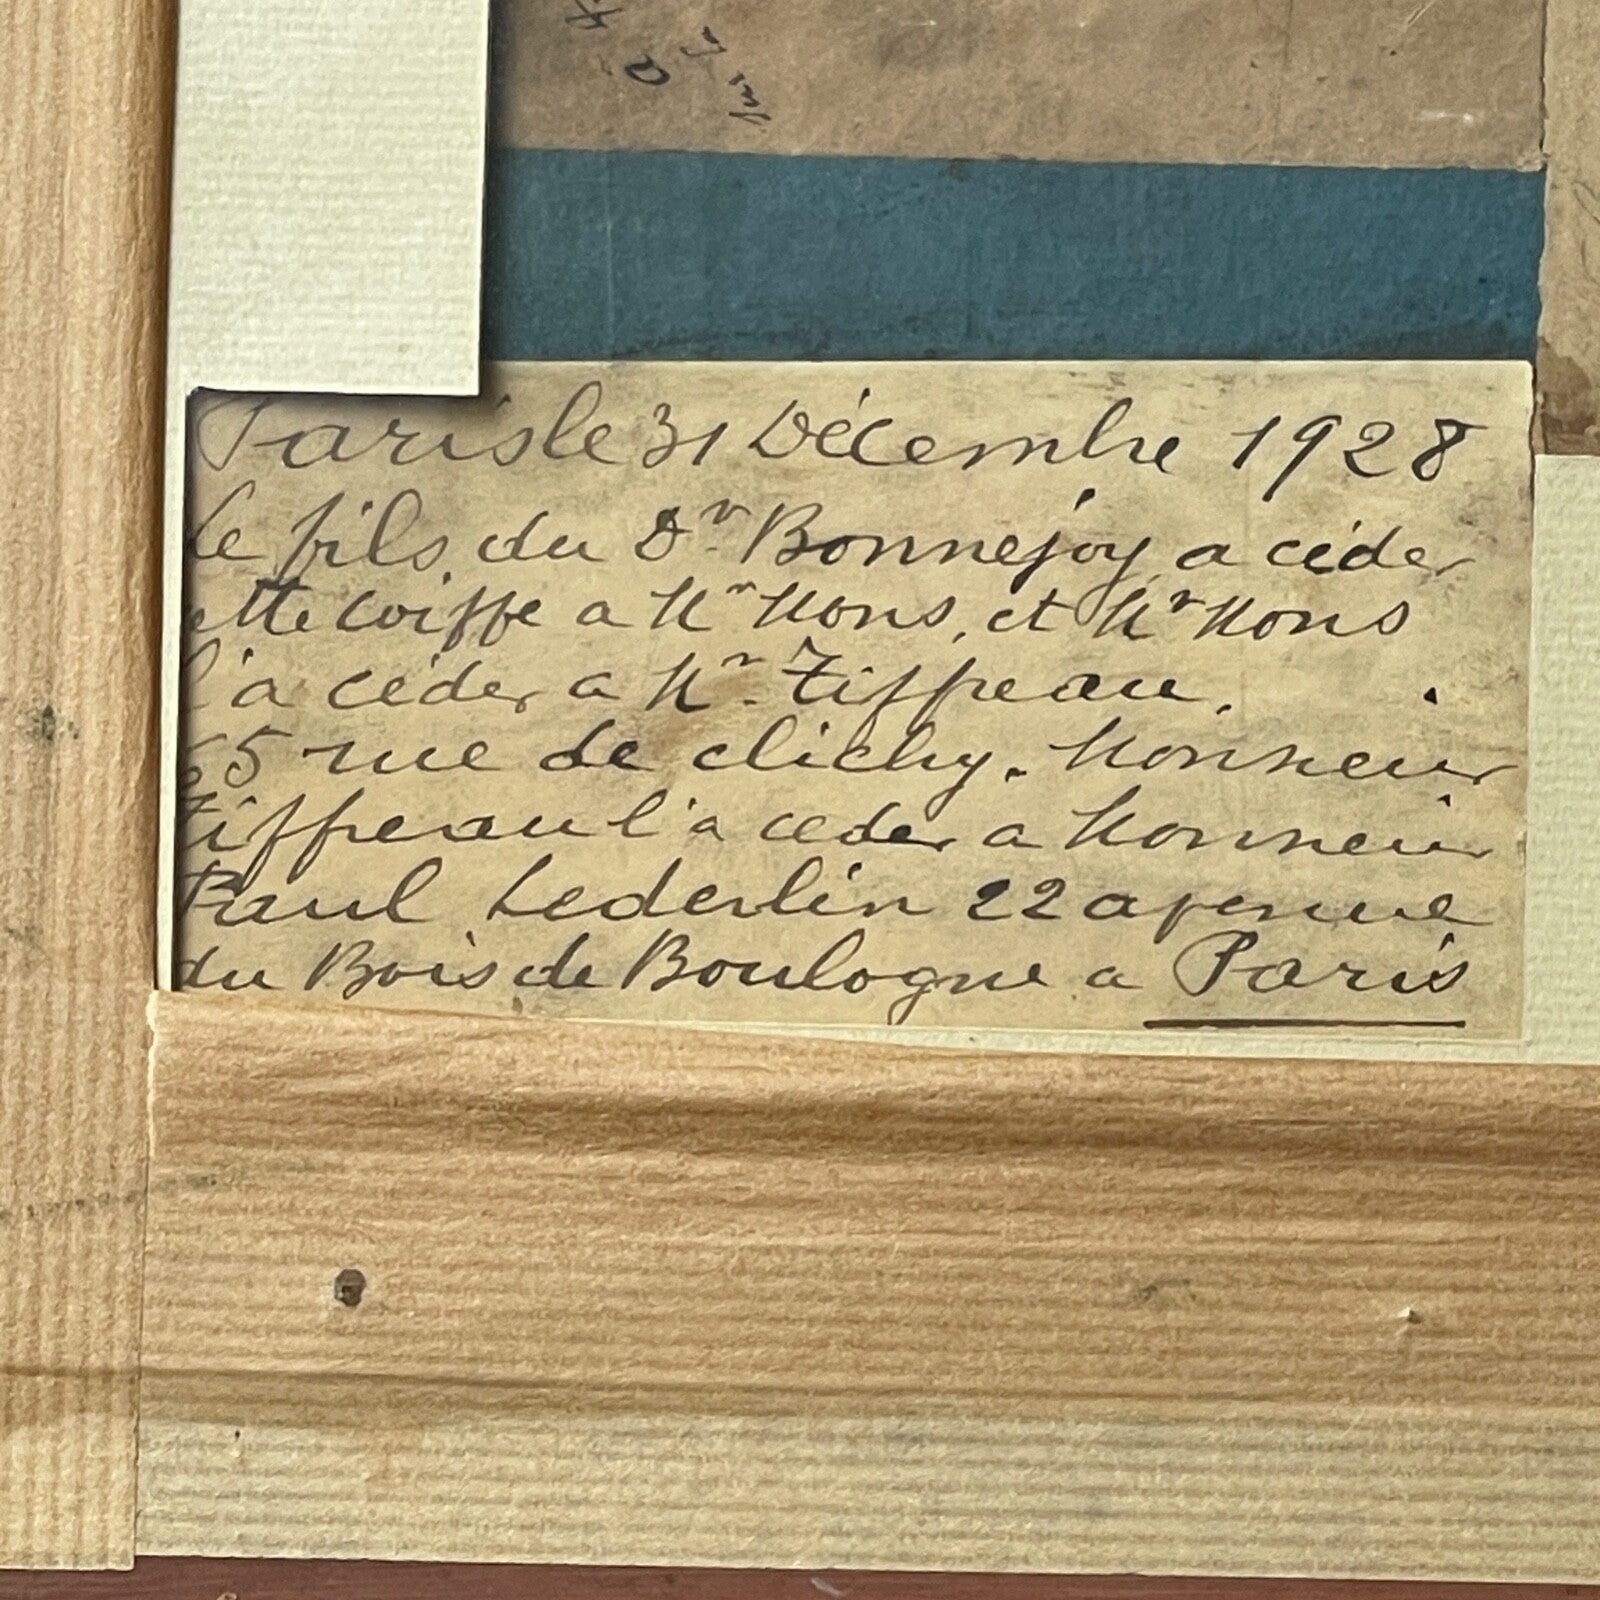 Paris le 31 Décembre 1928
Le fils du Dr. Bonnejoy a céder
ette coiffe a Mr Mons, et Mr Mons
l'a céder a Mr. Tiffreau.
65 rue de clichy. Monsieur
Tiffreau l'a ceder a Monsieur
Paul Lederlin 22 avenue
du Bois de Boulogne a Paris